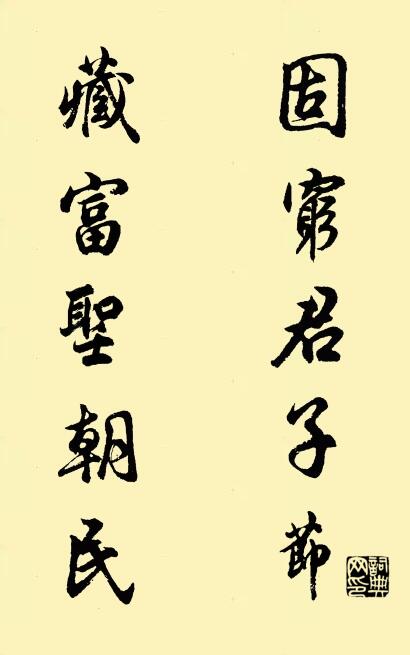 固窮君子節
藏富聖朝民
詞典網印